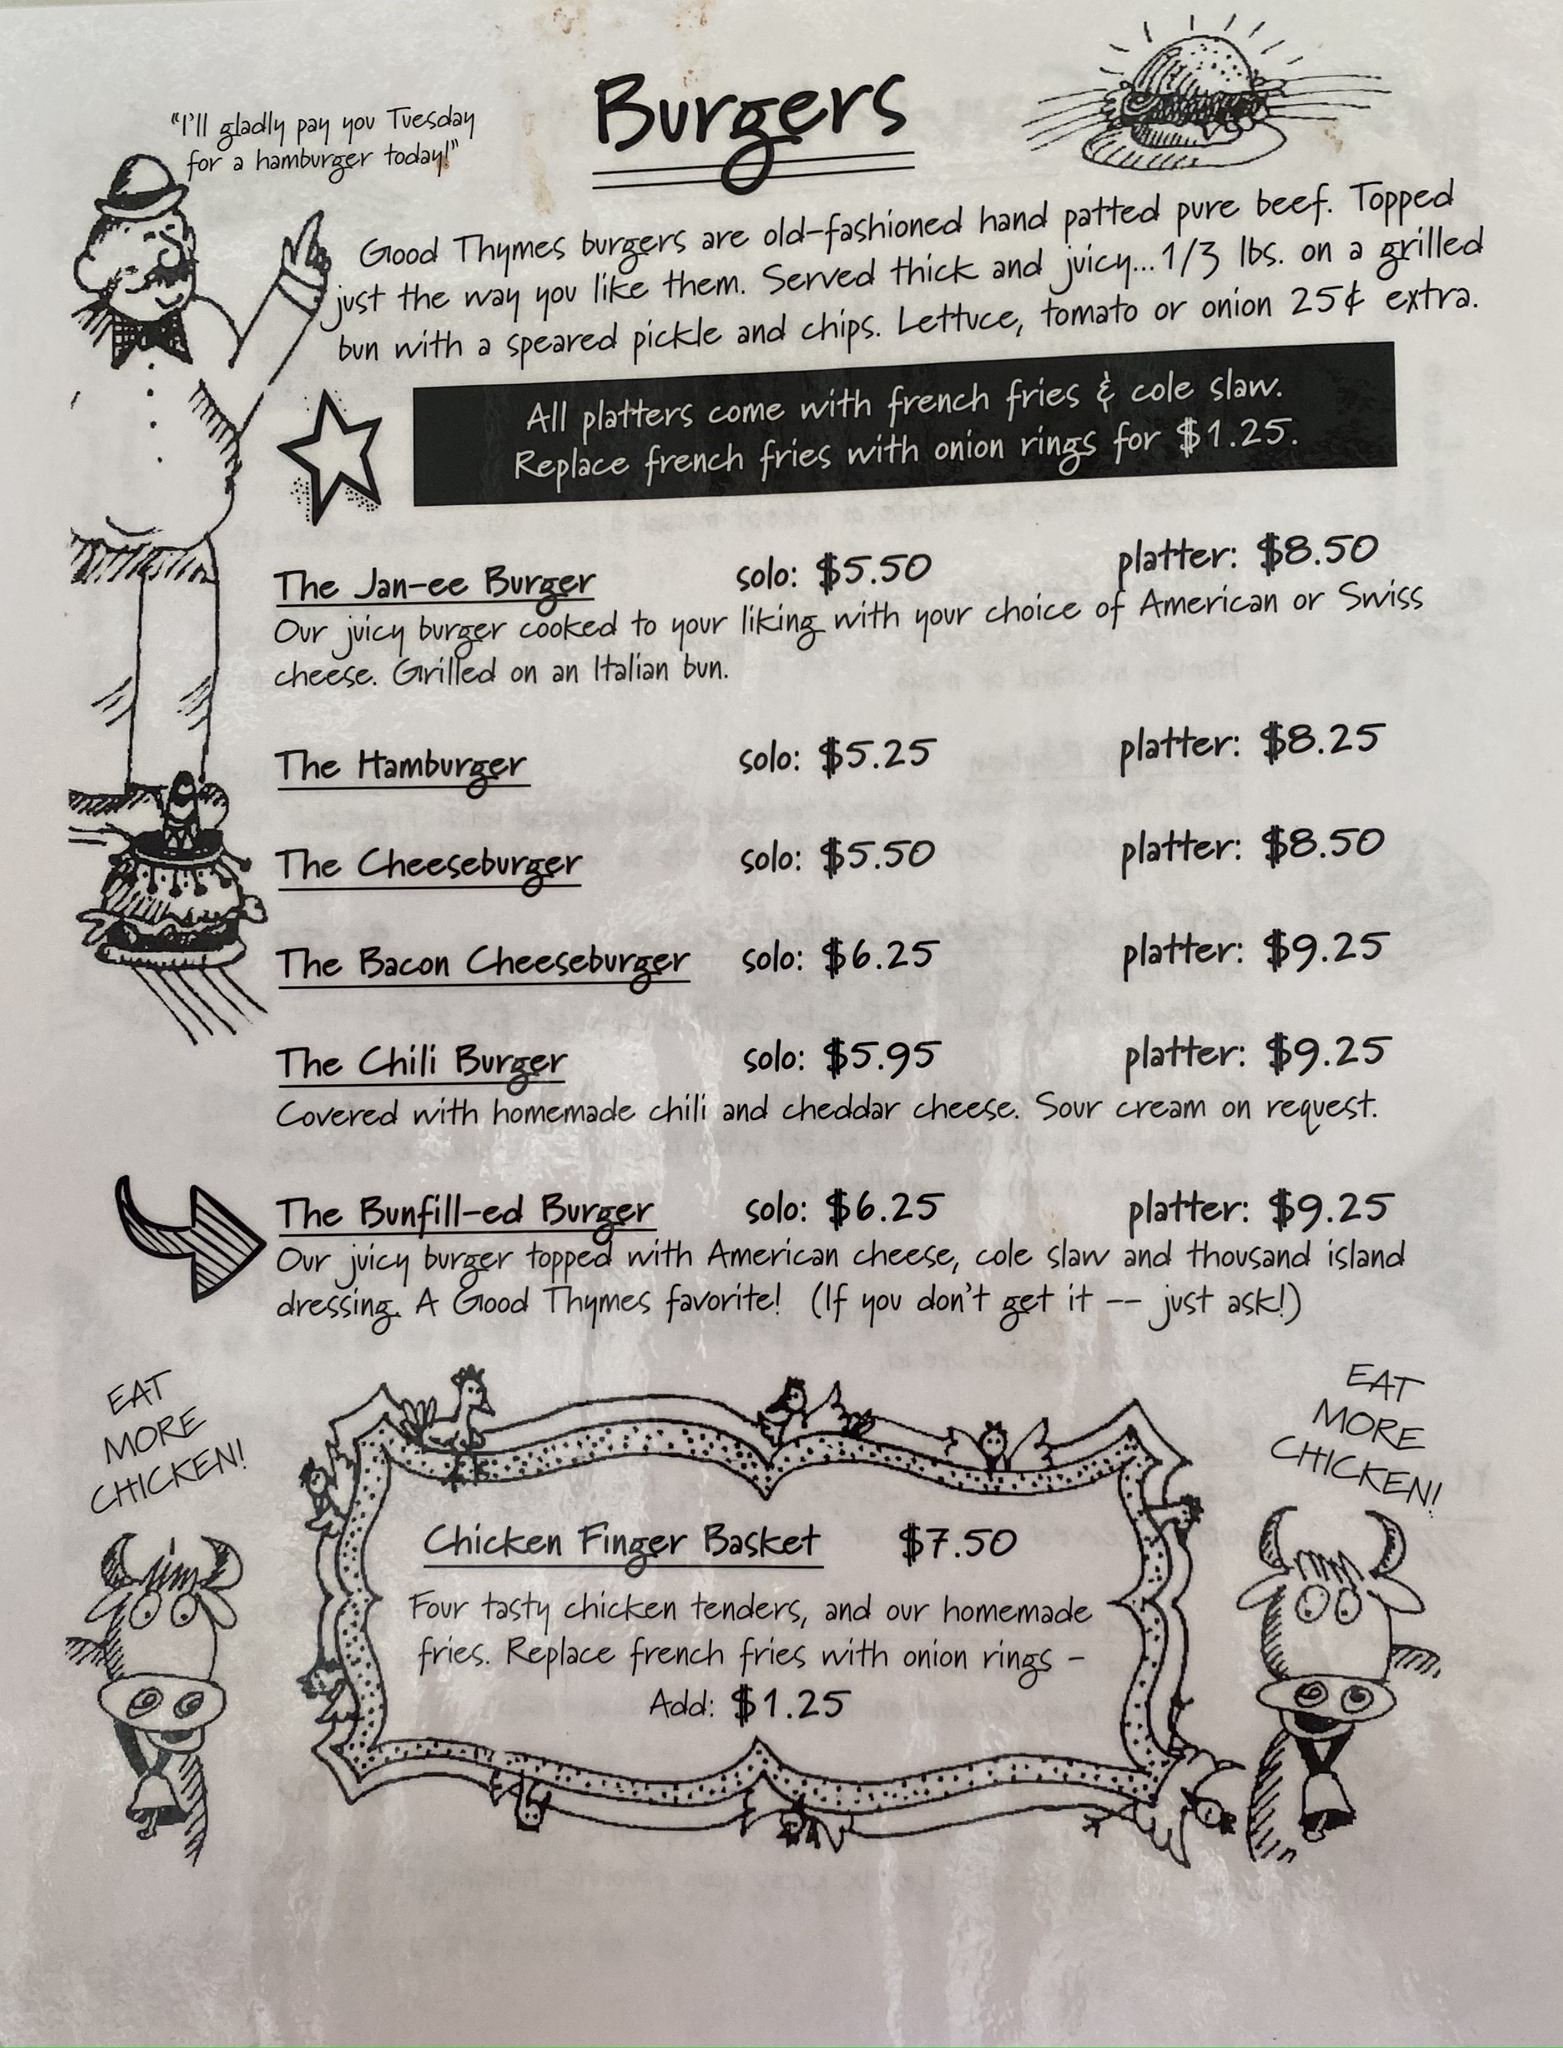 "I'll gladly pay you Tuesday
for a hamburger today!"
Burgers
Good Thymes burgers are old-fashioned hand patted pure beef. Topped
just the way you like them. Served thick and juicy... 1/3 lbs. on a grilled
bun with a speared pickle and chips. Lettuce, tomato or onion 25¢ extra.
All platters come with french fries & cole slaw.
Replace french fries with onion rings for $1.25.
The Jan-ee Burger solo: $5.50 platter: $8.50
Our juicy burger cooked to your liking with your choice of American or Swiss
cheese. Grilled on an Italian bun.
The Hamburger solo: $5.25 platter: $8.25
The Cheeseburger solo: $5.50 platter: $8.50
The Bacon Cheeseburger solo: $6.25 platter: $9.25
The Chili Burger solo: $5.95 platter: $9.25
Covered with homemade chili and cheddar cheese. Sour cream on request.
The Bunfill-ed Burger solo: $6.25 platter: $9.25
Our juicy burger topped with American cheese, cole slaw and thousand island
dressing. A Good Thymes favorite! (If you don't get it -- just ask!)
EAT
MORE
CHICKEN!
EAT
MORE
CHICKEN!
Chicken Finger Basket $7.50
Four tasty chicken tenders, and our homemade
fries. Replace french fries with onion rings -
Add: $1.25